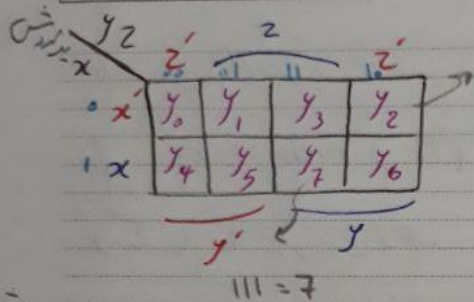 yz
x
z' z z'
00 01 11 10
0 x' y₀ y₁ y₃ y₂
1 x y₄ y₅ y₇ y₆
y' y
111 = 7